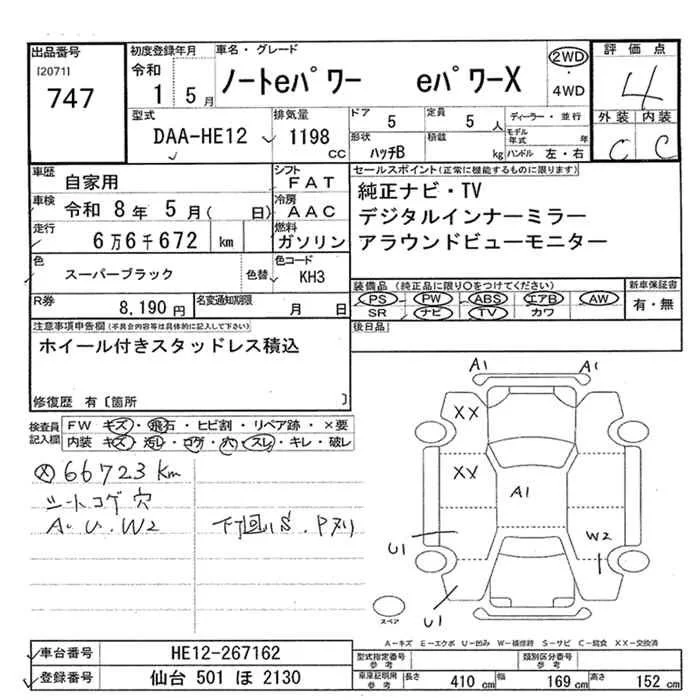 出品番号
[2071]
747
初度登録年月
令和
1 5月
車名・グレード
ノートeパワー eパワーX
2WD
・
4WD
評価点
4
外装 内装
C C
型式
DAA-HE12
排気量
1198
CC
ドア
5
定員
5人
形状
ハッチB
積載
kg
ディーラー・並行
モデル年式 年
ハンドル 左・右
車歴
自家用
シフト
FAT
車検
令和 8年 5月( 日)
冷房
AAC
走行
6万6千672 km
燃料
ガソリン
色
スーパーブラック
色替
色コード
KH3
R券
8,190円
名変通知期限
月 日
セールスポイント(正常に機能するものに限ります)
純正ナビ・TV
デジタルインナーミラー
アラウンドビューモニター
装備品 (純正品に限り○をつけてください)
PS PW ABS エアB AW
SR ナビ TV カワ
新車保証書
有・無
後日品
注意事項申告欄(不具合内容等は具体的に記入して下さい)
ホイール付きスタッドレス積込
修復歴 有〔箇所 〕
検査員
記入欄
FW キズ・飛石・ヒビ割・リペア跡・×要
内装 キズ・汚レ・コゲ・穴・スレ・キレ・破レ
66723km
シートコゲ穴
A・U・W2
下回りS・Pヌリ
A1 A1
XX
XX
A1
U1
W2
U1
スペア
A-キズ E-エクボ U-凹み W-補修跡 S-サビ C-腐食 XX-交換済
車台番号
HE12-267162
登録番号
仙台 501 ほ 2130
型式指定番号
参考
類別区分番号
参考
車庫証明用
参考
長さ 410 cm 幅 169 cm 高さ 152 cm